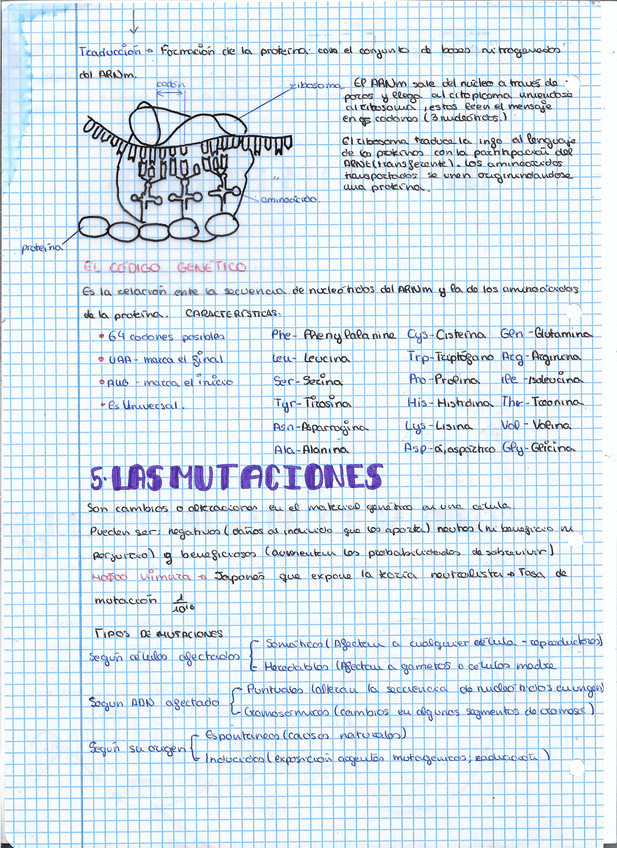 Traducción → Formación de la proteína con el conjunto de bases nitrogenadas
del ARNm.
codón
ribosoma
El ARNm sale del núcleo a través de
poros y llega al citoplasma uniendose
al ribosoma, estos leen el mensaje
en codones (3 nucleótidos.)
El ribosoma traduce la info al lenguaje
de las proteinas con la participación del
ARNt (transferente). Los aminoácidos
transportados se unen originandose
una proteina.
aminoácido
proteína
EL CÓDIGO GENÉTICO
Es la relación ente la secuencia de nucleótidos del ARNm y la de los aminoácidos
de la proteína. CARACTERÍSTICAS:
• 64 codones posibles
• UAA - marca el final
• AUG - marca el inicio
• Es Universal.
Phe - Phenylalanine Cys - Cisteína Gln - Glutamina
Leu - Leucina Trp - Triptófano Arg - Arginina
Ser - Serina Pro - Prolina Ile - Isoleucina
Tyr - Tirosina His - Histidina Thr - Treonina
Asn - Asparragina Lys - Lisina Val - Valina
Ala - Alanina Asp - á, aspártico Gly - Glicina
5. LAS MUTACIONES
Son cambios o alteraciones en el material genético en una célula
Pueden ser: negativos (daños al individuo que los aporte) neutros (ni beneficio ni
perjuicio) y beneficiosos (aumentem las probabilidades de sobrevivir)
Motoo Kimura → Japonés que expone la teoría neutralista → Tasa de
mutación 1/10¹⁶
TIPOS DE MUTACIONES
Según células afectadas
Somáticas (Afectan a cualquier célula - reproductoras)
Heredables (Afectan a gametos o células madre
Según ADN afectado
Puntuales (alteran la secuencia de nucleótidos en un gen)
Cromosómicas (cambios en algunos segmentos de cromoso.)
Según su origen
Espontáneas (causas naturales)
Inducidas (exposición agentes mutagenicos, radiación)